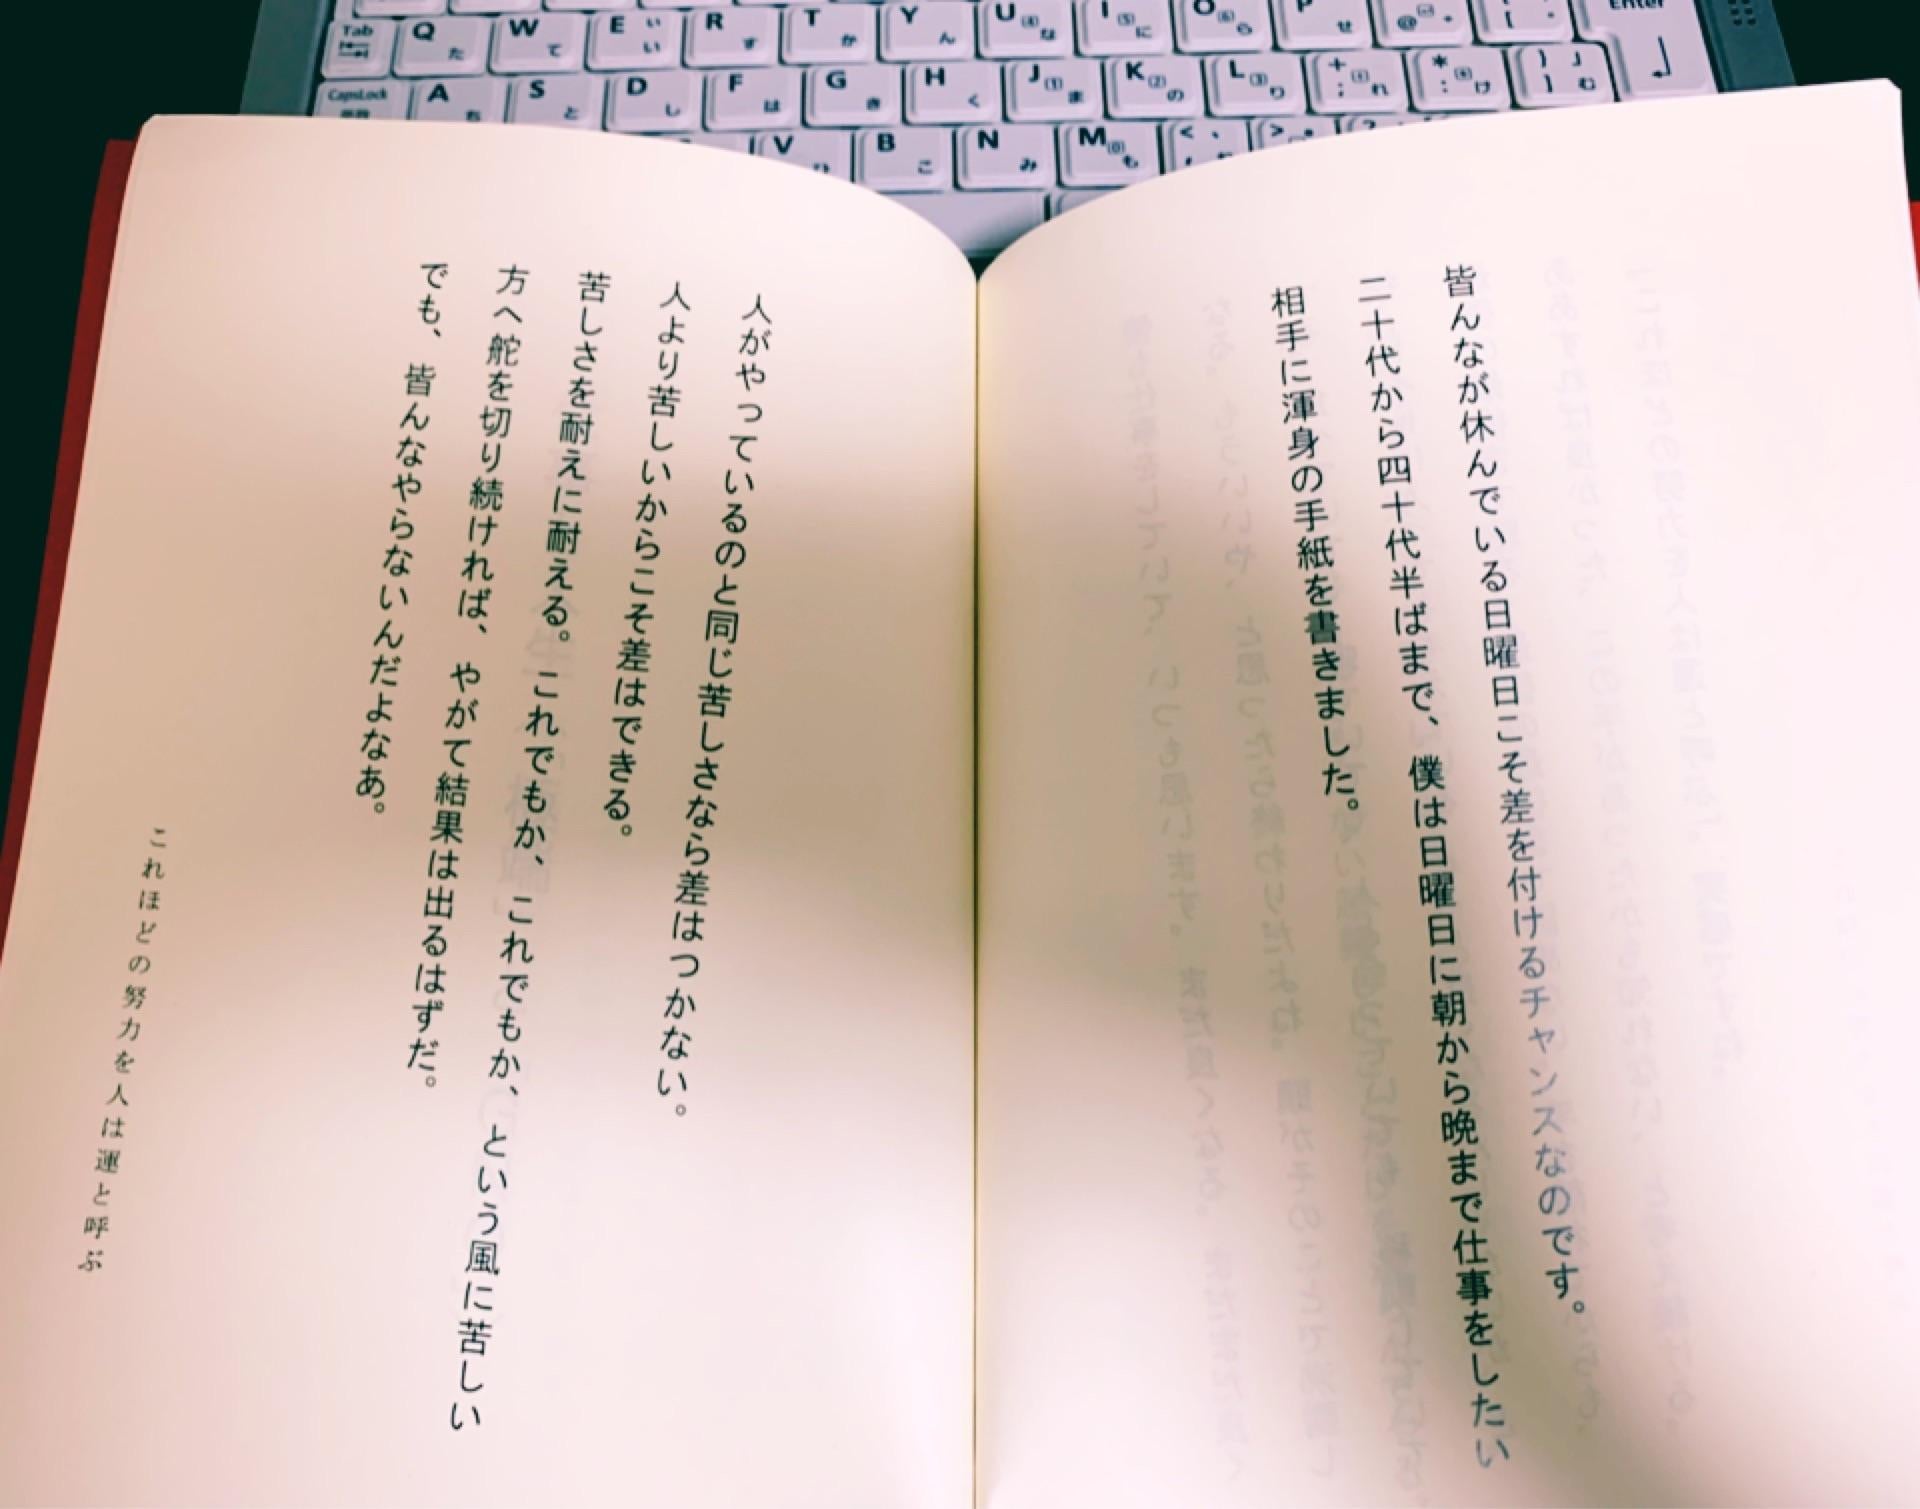 Tab Q た W て E ぃ い R す T か Y ん U (4) な I (5) に O (6) ら P せ @ [ Enter
CapsLock A ち S と D し F は G き H く J (1) ま K (2) の L (3) り + ; れ * : け } ] 」 む
V ひ B こ N み M (0) も < 、 > 。
皆んなが休んでいる日曜日こそ差を付けるチャンスなのです。
二十代から四十代半ばまで、僕は日曜日に朝から晩まで仕事をしたい
相手に渾身の手紙を書きました。
人がやっているのと同じ苦しさなら差はつかない。
人より苦しいからこそ差はできる。
苦しさを耐えに耐える。これでもか、これでもか、という風に苦しい
方へ舵を切り続ければ、やがて結果は出るはずだ。
でも、皆んなやらないんだよなあ。
これほどの努力を人は運と呼ぶ